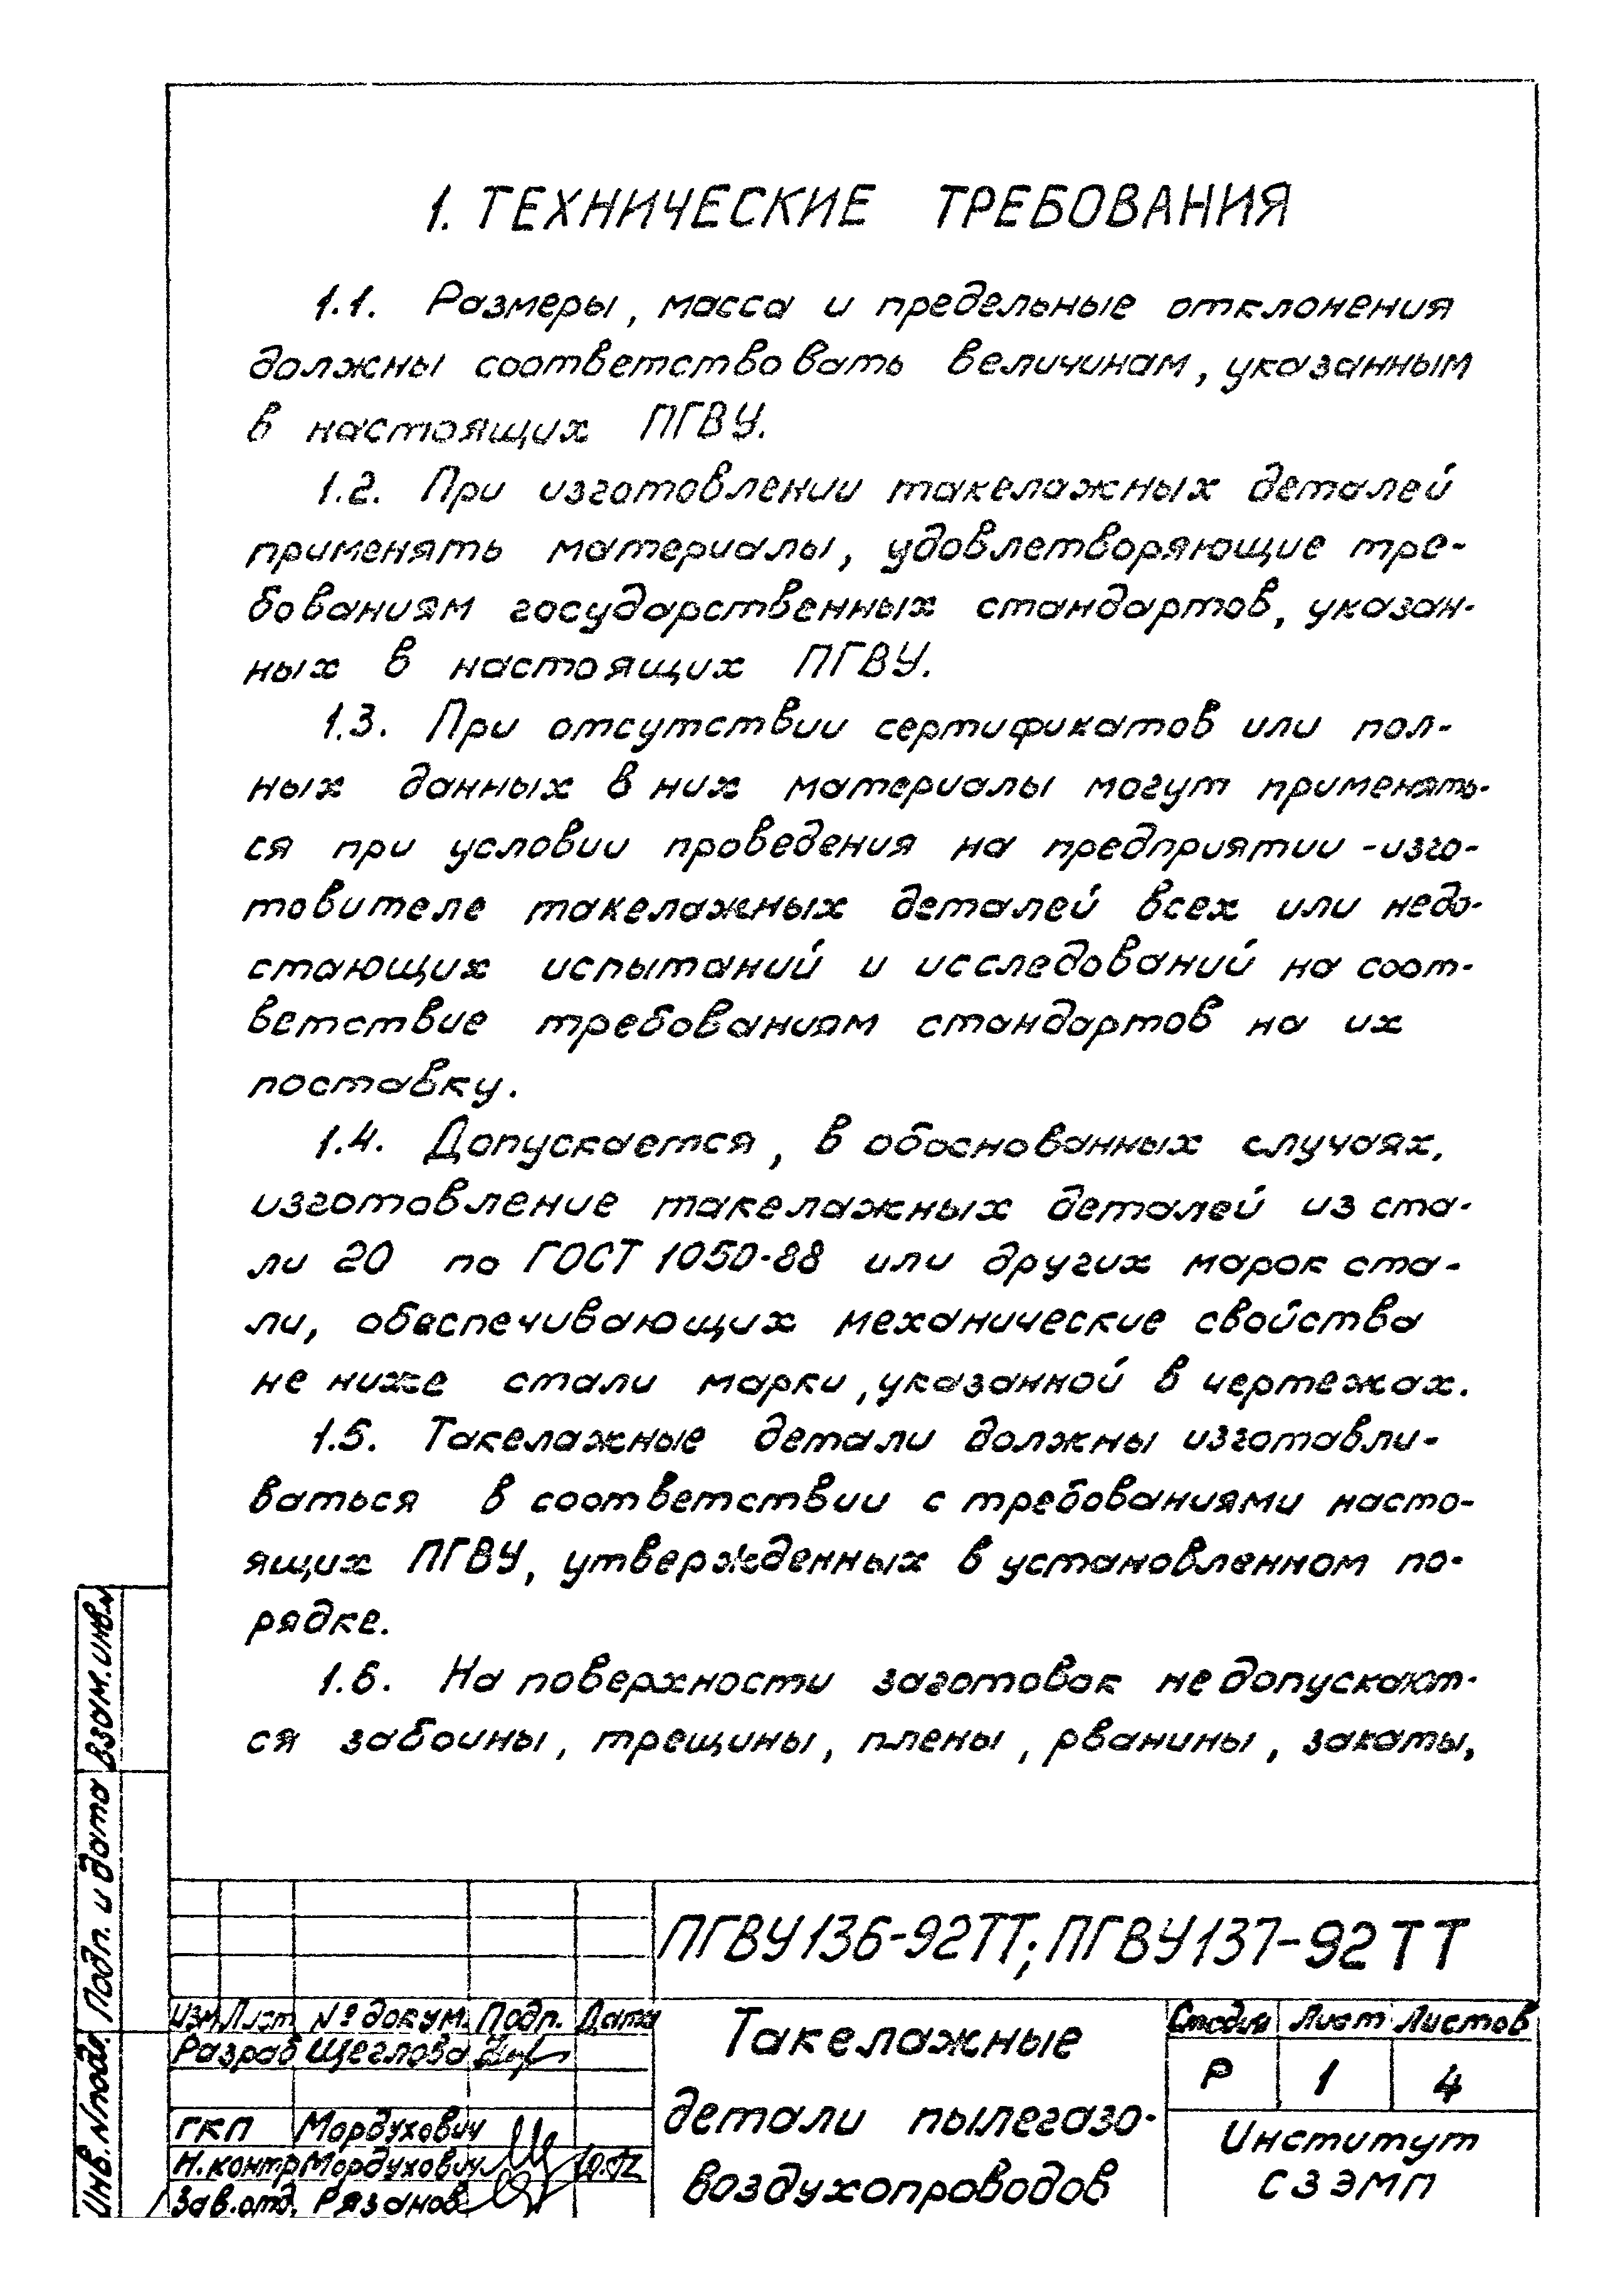 1. ТЕХНИЧЕСКИЕ ТРЕБОВАНИЯ
1.1. Размеры, масса и предельные отклонения
должны соответствовать величинам, указанным
в настоящих ПГВУ.
1.2. При изготовлении такелажных деталей
применять материалы, удовлетворяющие тре-
бованиям государственных стандартов, указан-
ных в настоящих ПГВУ.
1.3. При отсутствии сертификатов или пол-
ных данных в них материалы могут применять-
ся при условии проведения на предприятии-изго-
товителе такелажных деталей всех или недо-
стающих испытаний и исследований на соот-
ветствие требованиям стандартов на их
поставку.
1.4. Допускается, в обоснованных случаях,
изготовление такелажных деталей из ста-
ли 20 по ГОСТ 1050-88 или других марок ста-
ли, обеспечивающих механические свойства
не ниже стали марки, указанной в чертежах.
1.5. Такелажные детали должны изготавли-
ваться в соответствии с требованиями насто-
ящих ПГВУ, утвержденных в установленном по-
рядке.
1.6. На поверхности заготовок не допускают-
ся забоины, трещины, плены, рванины, закаты,
ПГВУ136-92ТТ; ПГВУ137-92ТТ
Изм Лист № докум. Подп. Дата
Разраб Щеглова
ГКП Мордухович
Н.контр Мордухович
Зав.отд. Рязанов
Такелажные
детали пылегазо-
воздухопроводов
Стадия Лист Листов
Р 1 4
Институт
СЗЭМП
Взам.инв.№
Подп. и дата
Инв.№подл.